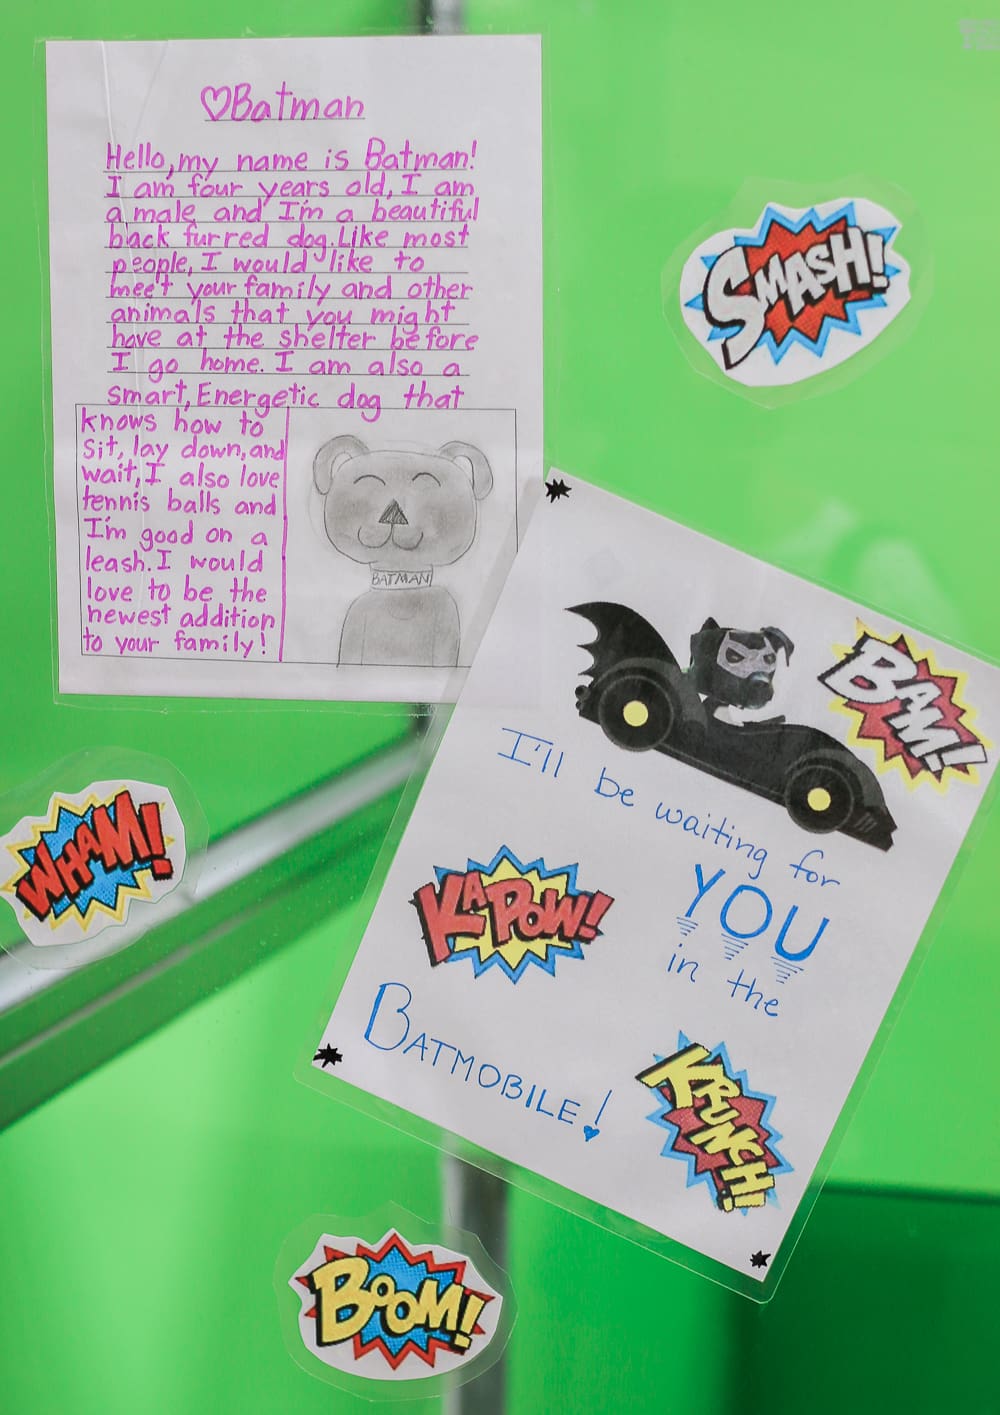 ♡Batman
Hello, my name is Batman!
I am four years old, I am
a male and I'm a beautiful
back furred dog. Like most
people, I would like to
meet your family and other
animals that you might
have at the shelter before
I go home. I am also a
smart, Energetic dog that
knows how to
Sit, lay down, and
wait, I also love
tennis balls and
I'm good on a
leash. I would
love to be the
newest addition
to your family!
BATMAN
SMASH!
BAM!!
I'll be waiting for
YOU
in the
BATMOBILE!
KAPOW!
KRUNCH!!
WHAM!
BOOM!